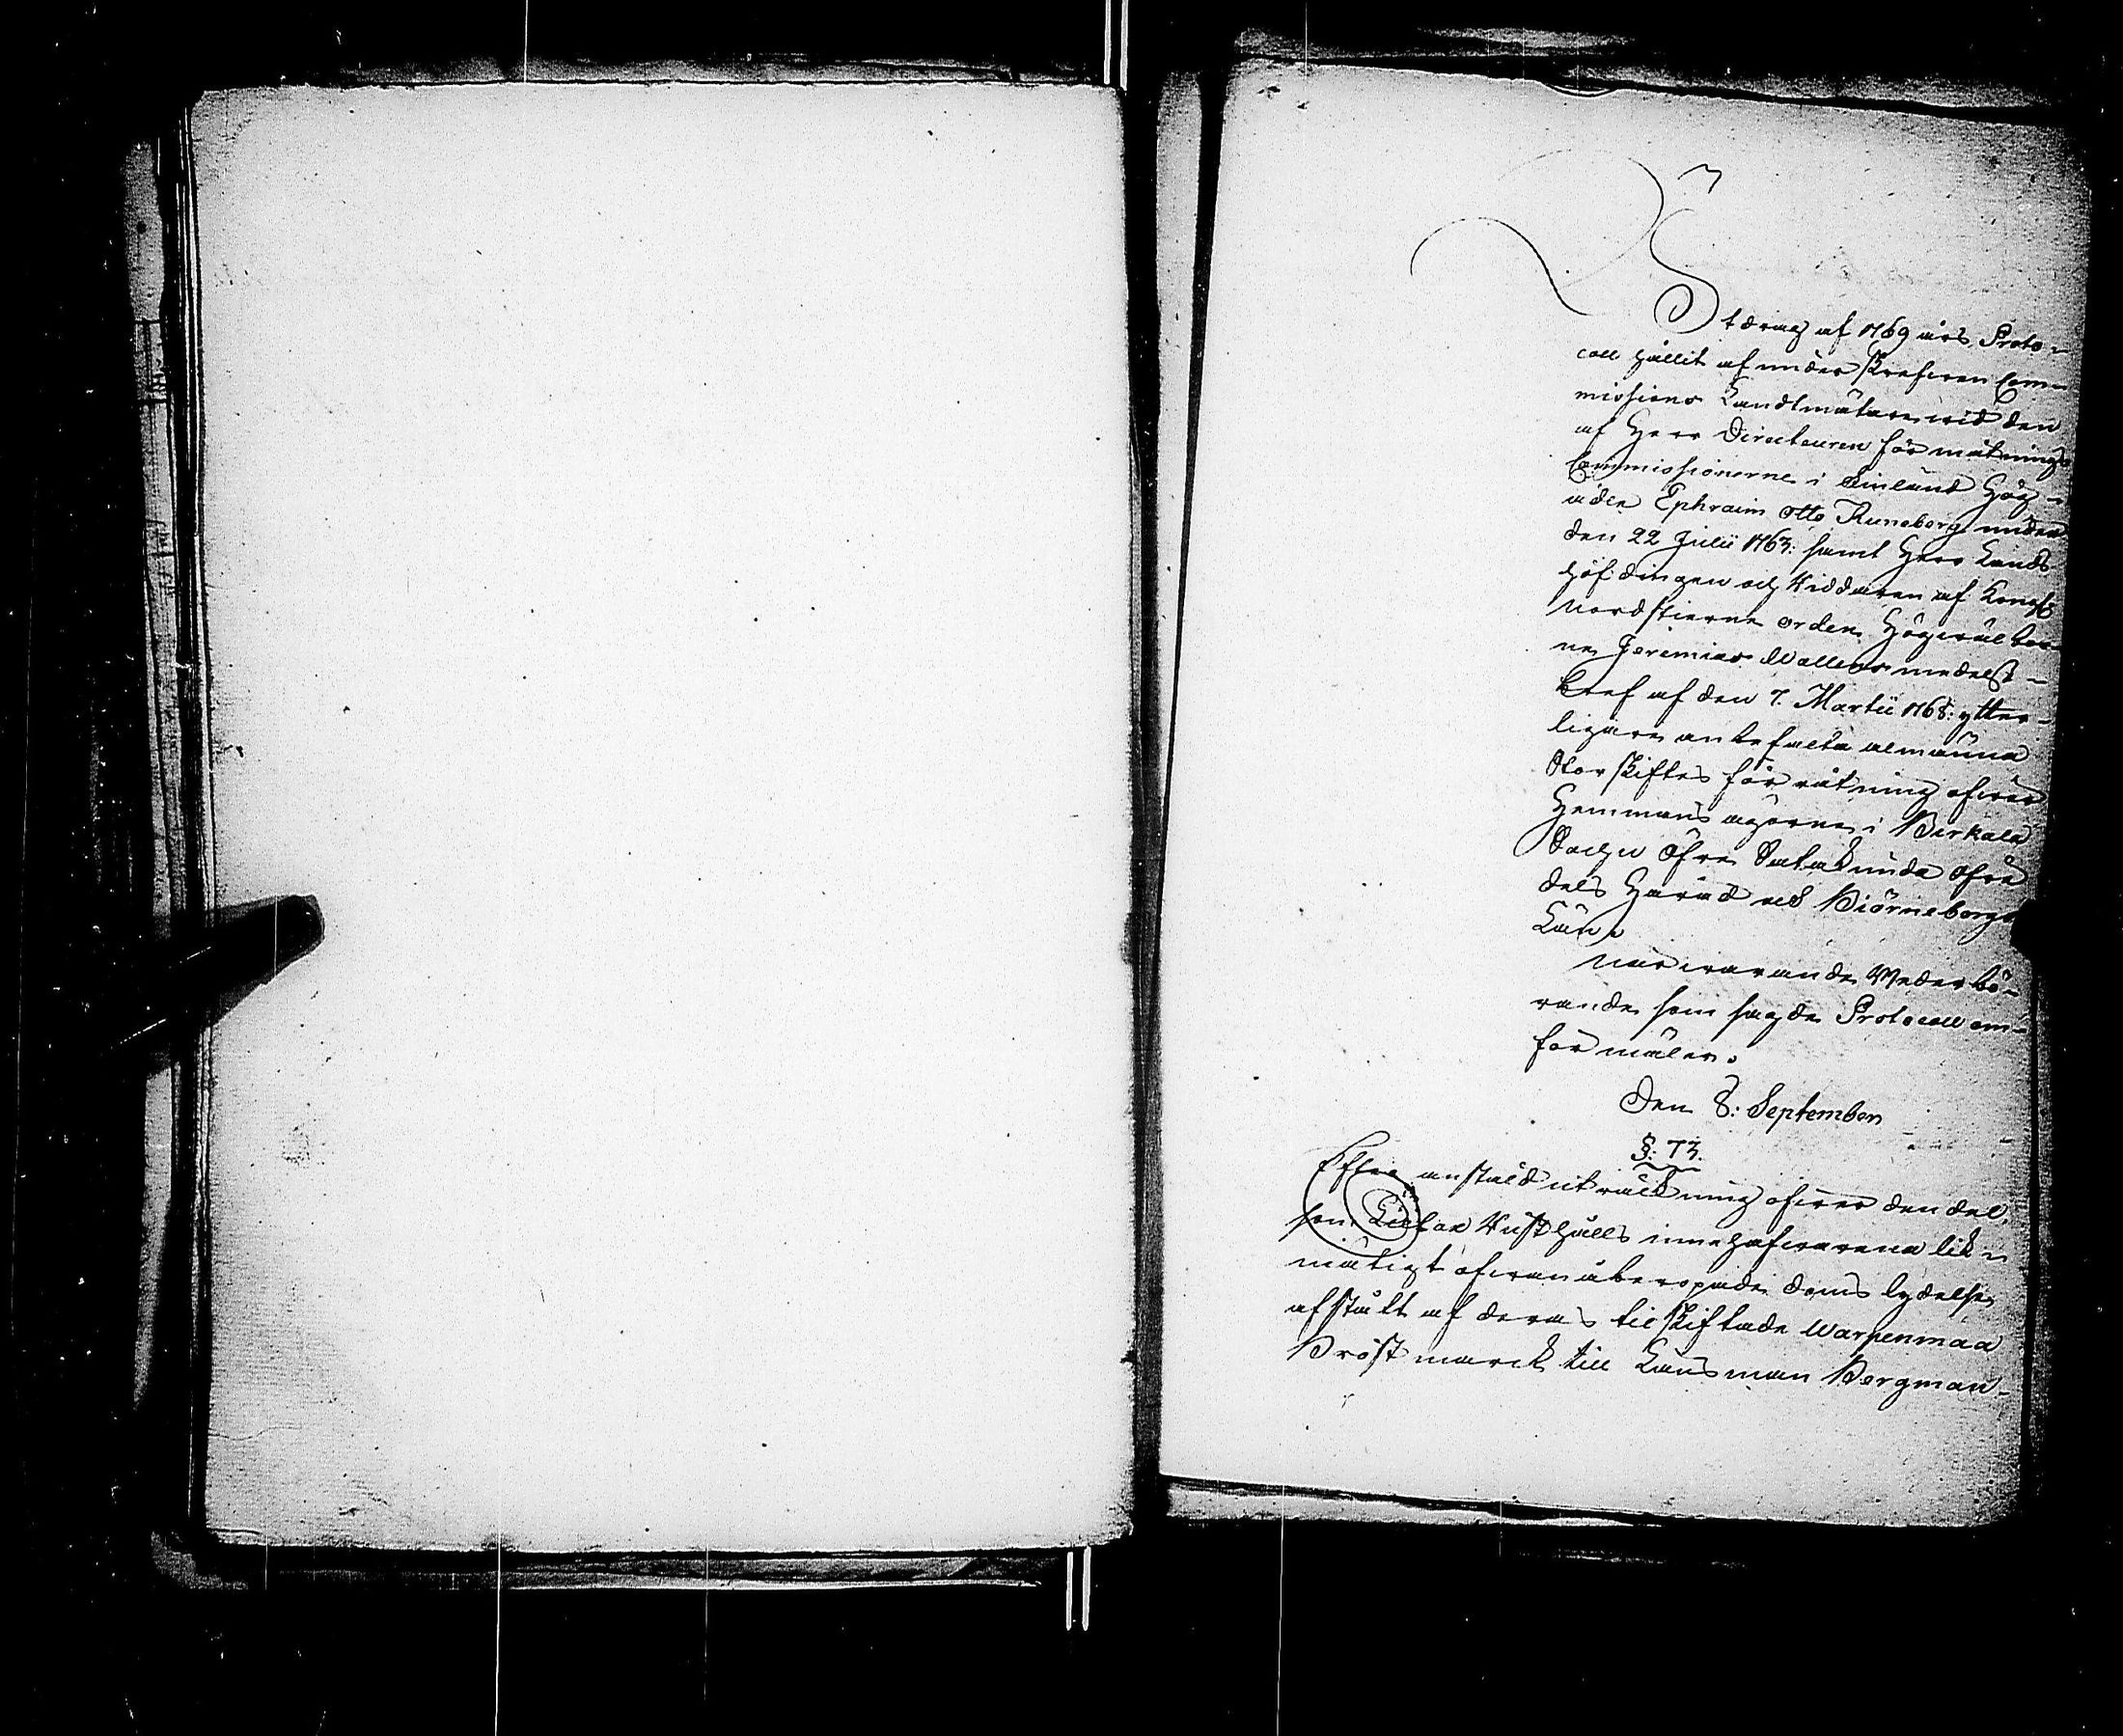 Utdrag af 1769 års Proto-
coll hållit af under Skrefven Com-
missions Landtmätare wid den
af Herr Directeuren för mätnings
Commissionerne i Finland Hög-
ädle Ephraim Otto Runeberg under
den 22 Julii 1763: samt Herr Lands
höfdingen och Riddaren af Kongl
Nordstierne orden Högwälbor-
ne Jeremias Wallens medelst
bref af den 7. Martii 1768: ytter-
ligare anbefalta almänna
Storskiftes förrätning öfwer
Hemmans ägorne i Birkala
Sochn Öfre Satakunda Öfre
dels Härad och Biörneborgs
Län.
Närwarande Wederbö-
rande som sagde Protocoll om-
förmäler.
Den 8: September
§: 73.
Efter anstäld uträckning öfwer den del
som Lielax Rusthålls innehafwarena lik-
mätigt ofwan åberopade doms lydelse
afstått af deras tilskiftade Warpenmaa
Bröstmarck till Länsman Bergman